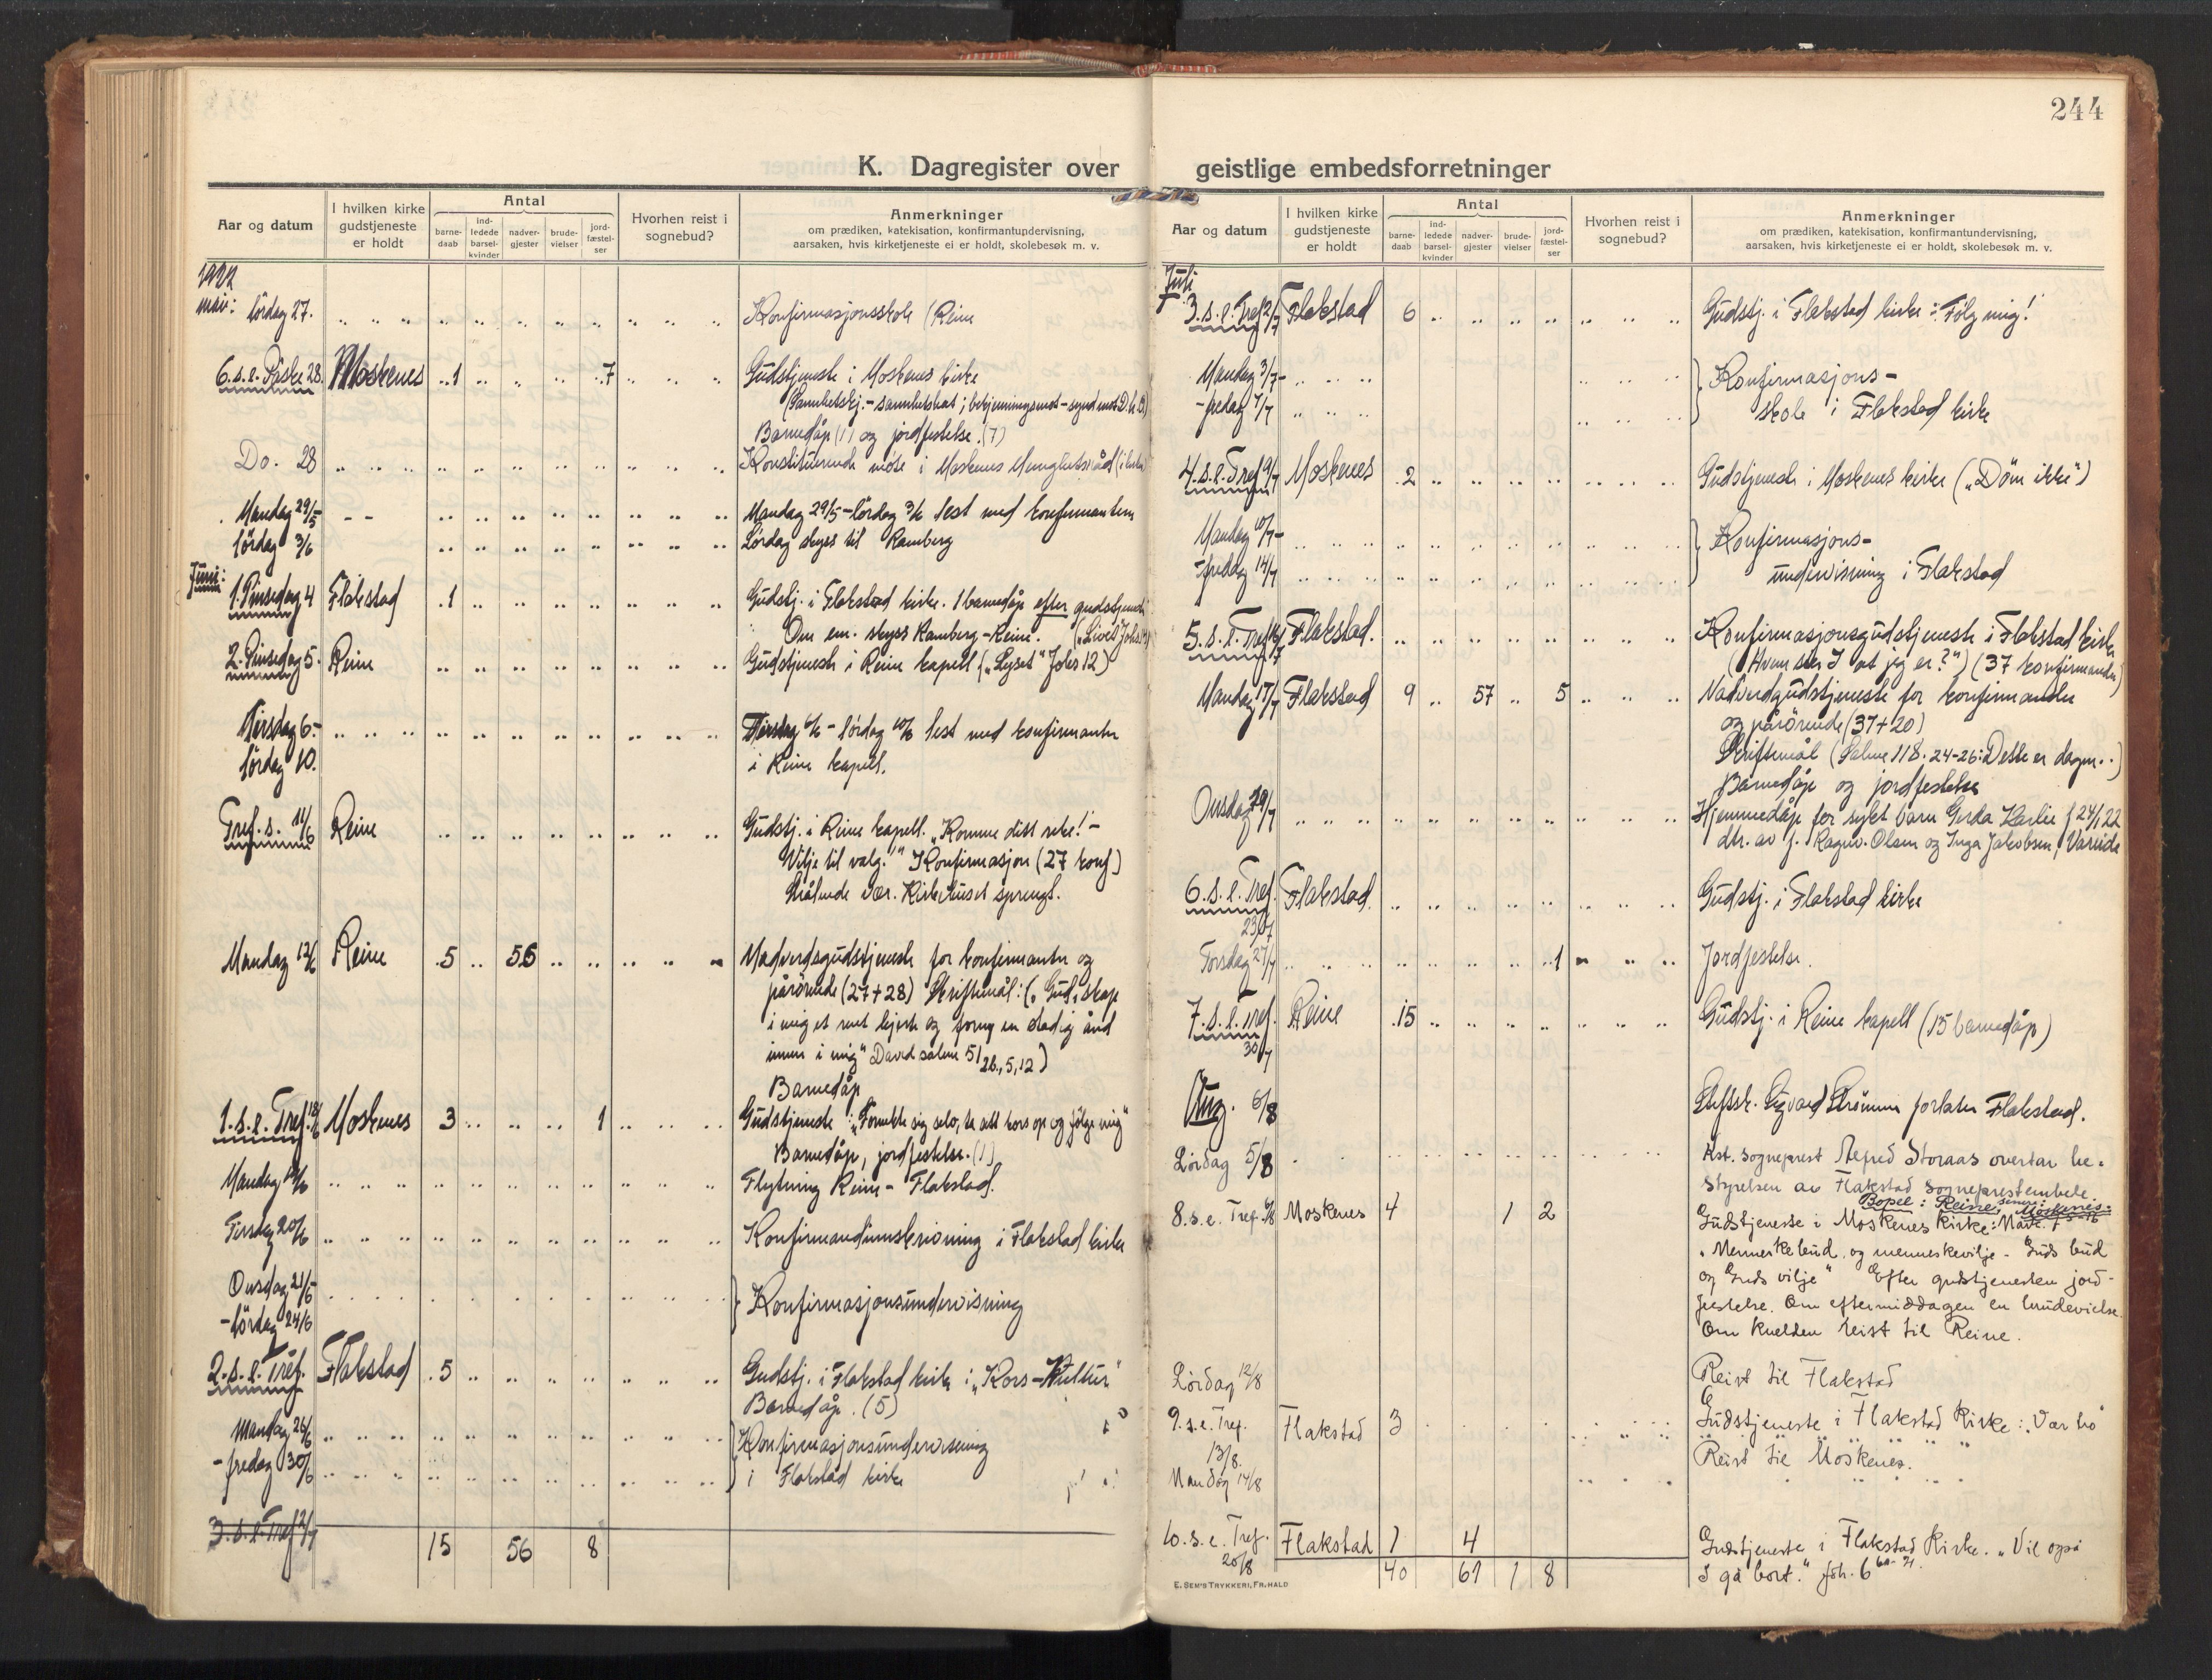 244
K. Dagregister over geistlige embedsforretninger
Aar og datum
I hvilken kirke gudstjeneste er holdt
Antal
barne-daab
ind-ledede barsel-kvinder
nadver-gjester
brude-vielser
jord-fæstel-ser
Hvorhen reist i sognebud?
Anmerkninger
om prædiken, katekisation, konfirmantundervisning,
aarsaken, hvis kirketjeneste ei er holdt, skolebesøk m. v.
1922
mai: lördag 27. Konfirmasjonsskole (Reine
6. s. e. Påske 28. Moskenes 1 7 Gudstjeneste i Moskenes kirke
Barnedåp (1) og jordfestelse. (7)
Do. 28 Konstituerende möte i Moskenes Menighetsråd
Mandag 29/5 - - Mandag 29/5 - lördag 3/6 lest med konfirmantene
lördag 3/6 Lördag skyss til Ramberg
Juni:
1. Pinsedag 4 Flakstad 1 Gudstj. i Flakstad kirke. 1 barnedåp efter gudstjeneste
Om em. skyss Ramberg - Reine.
2. Pinsedag 5. Reine Gudstjeneste i Reine kapell („Lyset" Johs 12)
Tirsdag 6. - Tirsdag 6/6 - lördag 10/6 lest med konfirmanter
lördag 10. i Reine kapell.
Tref. s. 11/6 Reine Gudstj. i Reine kapell. „Komme ditt rike! -
Vilje til valg." Konfirmasjon (27 konf)
Strålende vær. Kirkehuset sprengt.
Mandag 12/6 Reine 5 56 Nadverdsgudstjeneste for konfirmanter og
pårörende (27+28) Skriftemål: („Gud, skap
i mig et rent hjerte og forny en stadig ånd
innen i mig" Davids salme 51
Barnedåp
1. s. e. Tref. 18/6 Moskenes 3 1 Gudstjeneste: „Fornekte sig selv, ta sitt kors op og fölge mig"
Barnedåp, jordfestelse. (1)
Mandag 19/6 Flytning Reine - Flakstad.
Tirsdag 20/6 Konfirmandinnskrivning i Flakstad kirke
Onsdag 21/6
- lördag 24/6 Konfirmasjonsundervisning
2. s. e. Tref. Flakstad 5 Gudstj. i Flakstad kirke: „Kors - Kultur"
Barnedåp. (5)
Mandag 26/6 Konfirmasjonsundervisning
- fredag 30/6 i Flakstad kirke
3. s. e. Tref 2/7
15 56 8
Aar og datum
I hvilken kirke gudstjeneste er holdt
Antal
barne-daab
ind-ledede barsel-kvinder
nadver-gjester
brude-vielser
jord-fæstel-ser
Hvorhen reist i sognebud?
Anmerkninger
om prædiken, katekisation, konfirmantundervisning,
aarsaken, hvis kirketjeneste ei er holdt, skolebesøk m. v.
Juli
3. s. e. Tref 2/7 Flakstad 6 Gudstj. i Flakstad kirke: Fölg mig!
Mandag 3/7 - Konfirmasjons-
- fredag 7/7 skole i Flakstad kirke
4. s. e. Tref 9/7 Moskenes 2 Gudstjeneste i Moskenes kirke („Döm ikke")
Mandag 10/7 - Konfirmasjons-
- fredag 14/7 undervisning i Flakstad
5. s. e. Tref 16/7 Flakstad. Konfirmasjonsgudstjeneste i Flakstad kirke
(„Hvem sier I at jeg er?") (37 konfirmander)
Mandag 17/7 Flakstad 9 57 5 Nadverdgudstjeneste for konfirmander
og pårörende (37+20)
Skriftemål (Salme 118. 24-26: Dette er dagen..)
Barnedåp og jordfestelse
Onsdag 19/7 Hjemmedåp for sykt barn Gerda Karlie f 24/1 22
dtr. av f. Ragnv. Olsen og Inga Jakobsen,
6. s. e. Tref. Flakstad. Gudstj. i Flakstad kirke
23/7
Torsdag 27/7 1 Jordfestelse.
7. s. e. Tref. Reine 15 Gudstj. i Reine kapell (15 barnedåp)
30/7
Aug. 6/8 Stiftsk. Sigvard Strömme forlater Flakstad.
Lördag 5/8 Kst. sogneprest Storaas overtar be-
styrelsen av Flakstad sogneprestembede.
Bopel: Reine, senere: Moskenes.
8. s. e. Tref. 6/8 Moskenes 4 1 2 Gudstjeneste i Moskenes kirke: Mark. 7
„Menneskebud og menneskevilje - Guds bud
og Guds vilje" Efter gudstjenesten jord-
festelse. Om eftermiddagen en brudevielse
Om kvelden reist til Reine.
Lördag 12/8 Reist til Flakstad
9. s. e. Tref. Flakstad 3 Gudstjeneste i Flakstad Kirke: „Vær tro"
13/8.
Mandag 14/8 Reist til Moskenes.
10. s. e. Tref. Flakstad 1 4 Gudstjeneste i Flakstad Kirke. „Vil også
20/8 I gå bort." Joh. 6
40 61 1 8
E. SEM'S TRYKKERI, FR.HALD